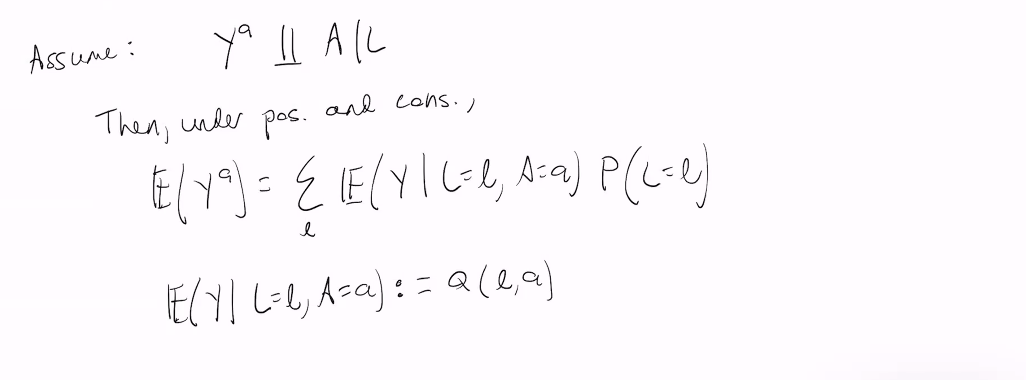 Assume: Yᵃ ⫫ A|L
Then, under pos. and cons.,
𝔼(Yᵃ) = Σₗ 𝔼(Y|L=l, A=a) P(L=l)
𝔼(Y|L=l, A=a) := Q(l,a)